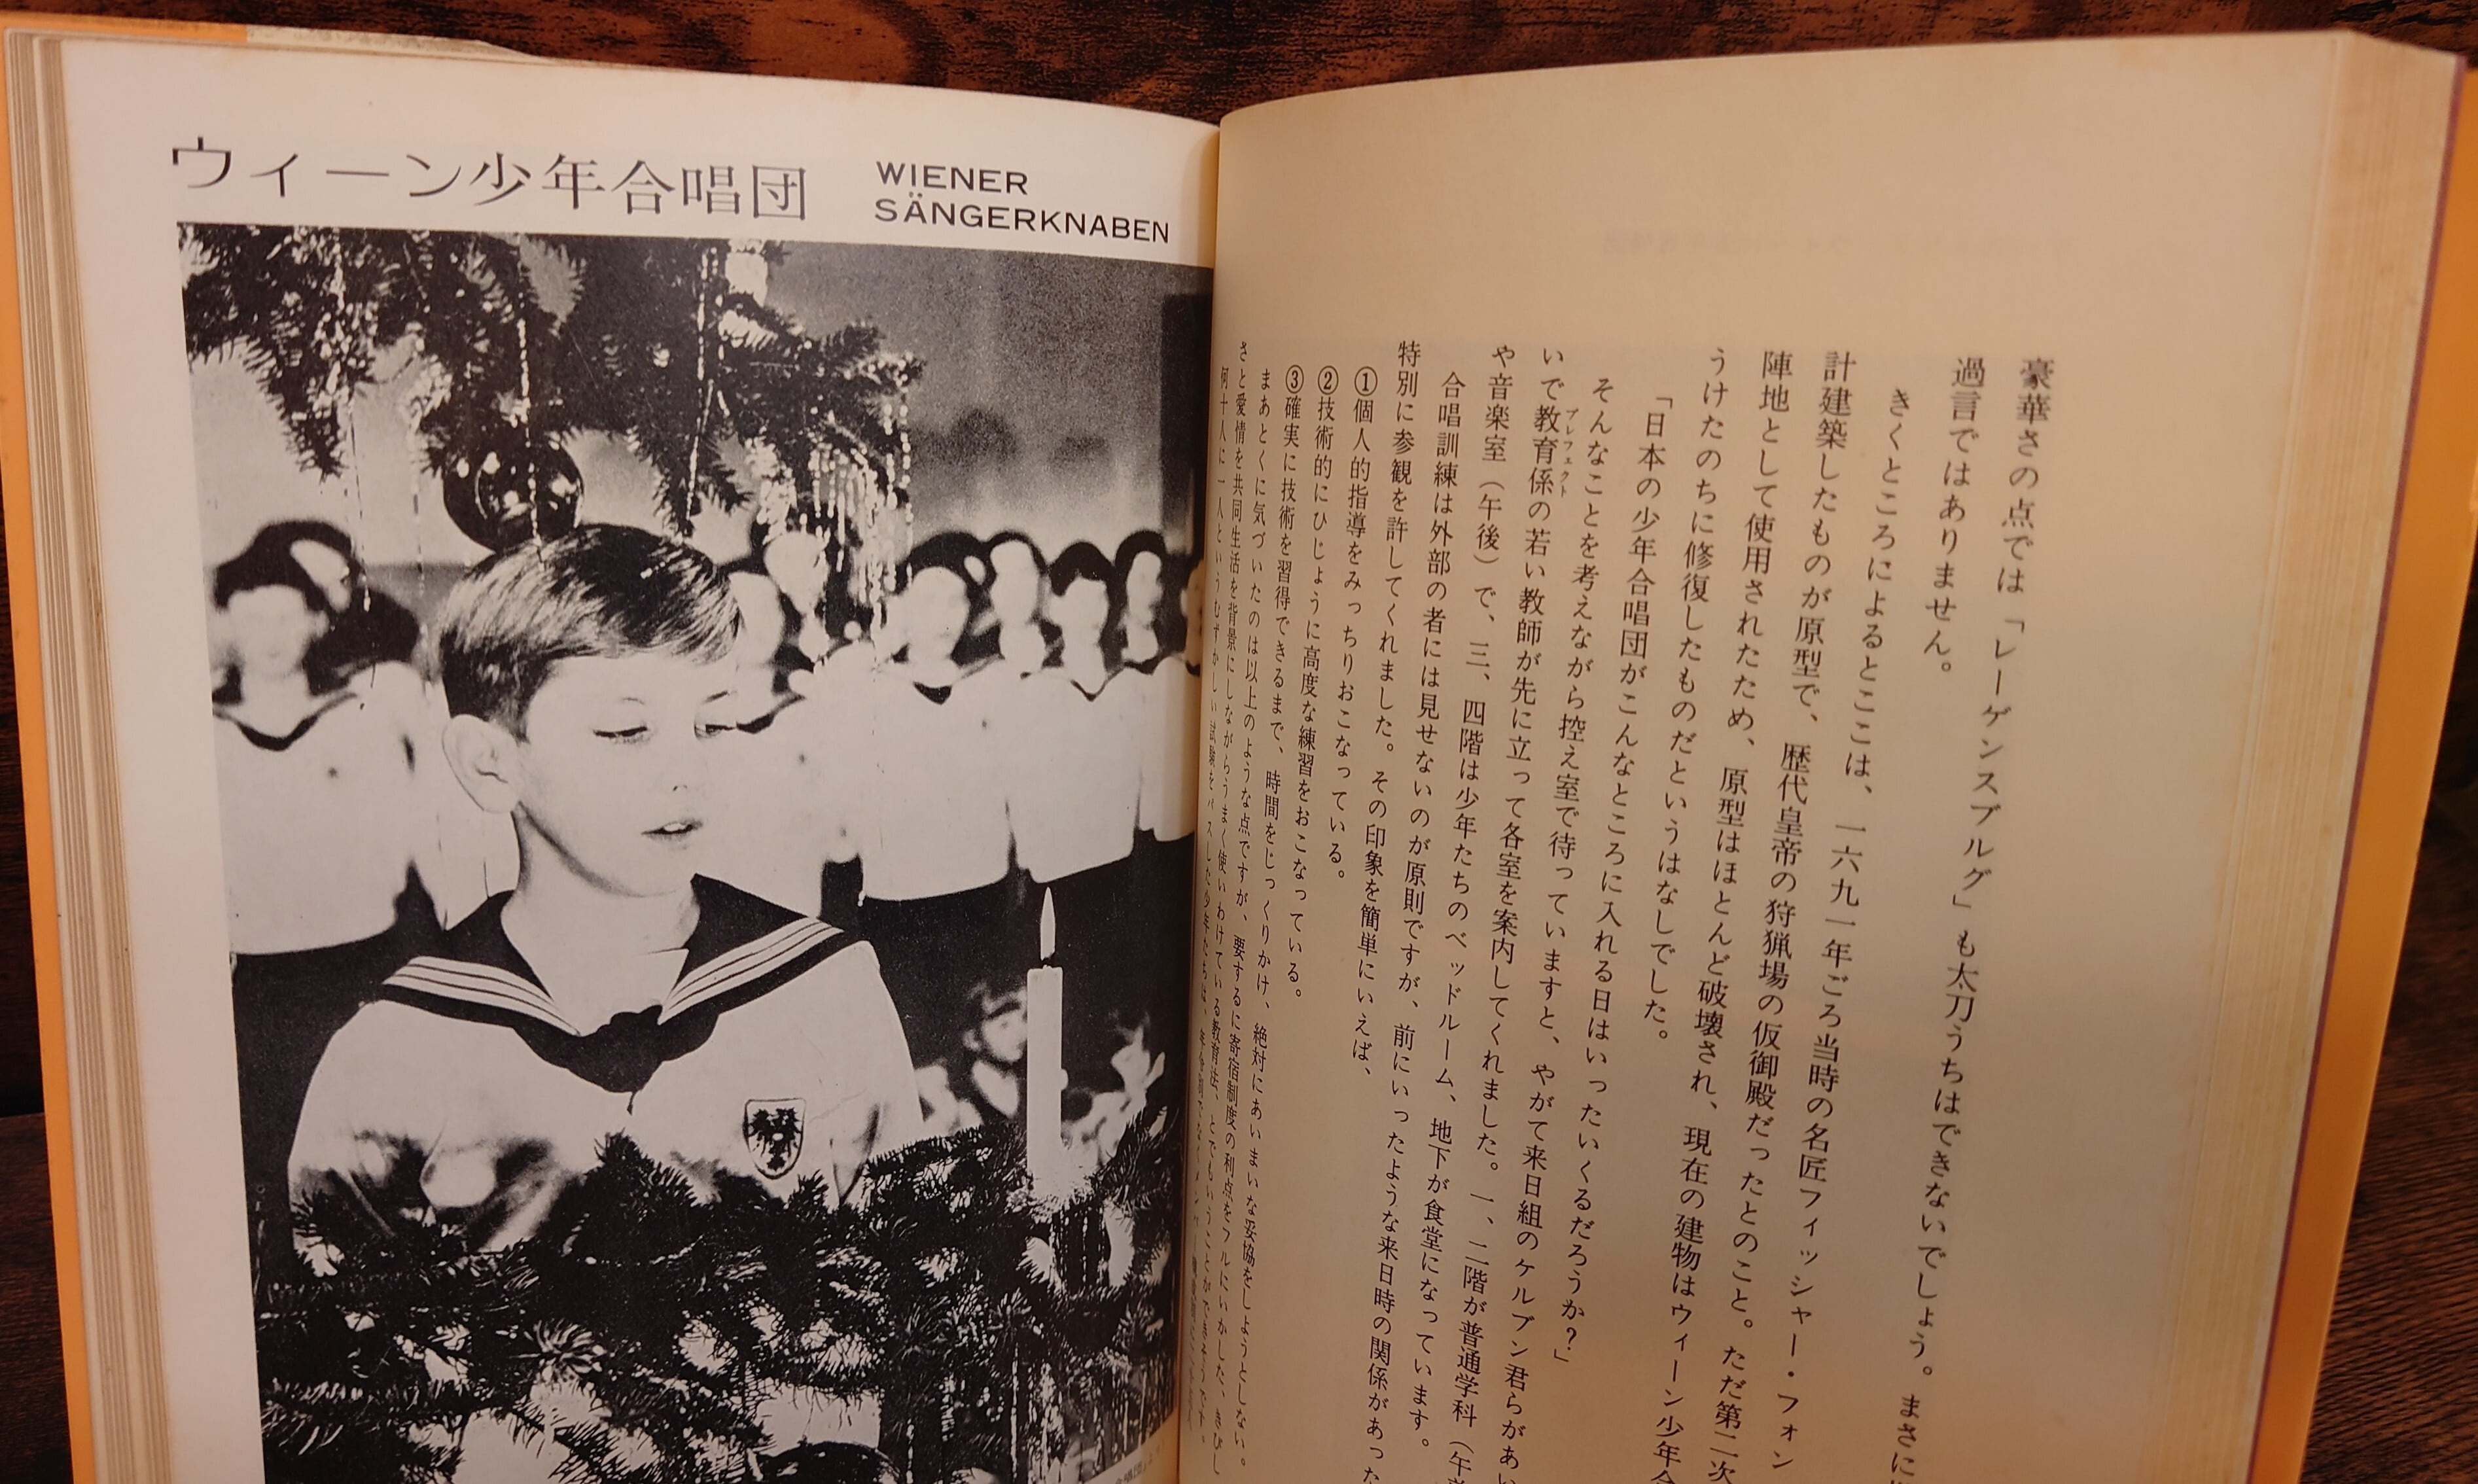 ウィーン少年合唱団
WIENER
SÄNGERKNABEN
豪華さの点では「レーゲンスブルグ」も太刀うちはできないでしょう。まさに
過言ではありません。
きくところによるとここは、一六九一年ごろ当時の名匠フィッシャー・フォン
計建築したものが原型で、歴代皇帝の狩猟場の仮御殿だったとのこと。ただ第二次
陣地として使用されたため、原型はほとんど破壊され、現在の建物はウィーン少年合
うけたのちに修復したものだというはなしでした。
「日本の少年合唱団がこんなところに入れる日はいったいくるだろうか?」
そんなことを考えながら控え室で待っていますと、やがて来日組のケルブン君らがあい
いで教育係プレフェクトの若い教師が先に立って各室を案内してくれました。一、二階が普通学科(午前
や音楽室(午後)で、三、四階は少年たちのベッドルーム、地下が食堂になっています。
合唱訓練は外部の者には見せないのが原則ですが、前にいったような来日時の関係があった
特別に参観を許してくれました。その印象を簡単にいえば、
①個人的指導をみっちりおこなっている。
②技術的にひじょうに高度な練習をおこなっている。
③確実に技術を習得できるまで、時間をじっくりかけ、絶対にあいまいな妥協をしようとしない。
まあとくに気づいたのは以上のような点ですが、要するに寄宿制度の利点をフルにいかした、きびし
さと愛情を共同生活を背景にしながらうまく使いわけている教育法、とでもいうことができましょう
何十人に一人というむずかしい試験をパスした少年たちは、